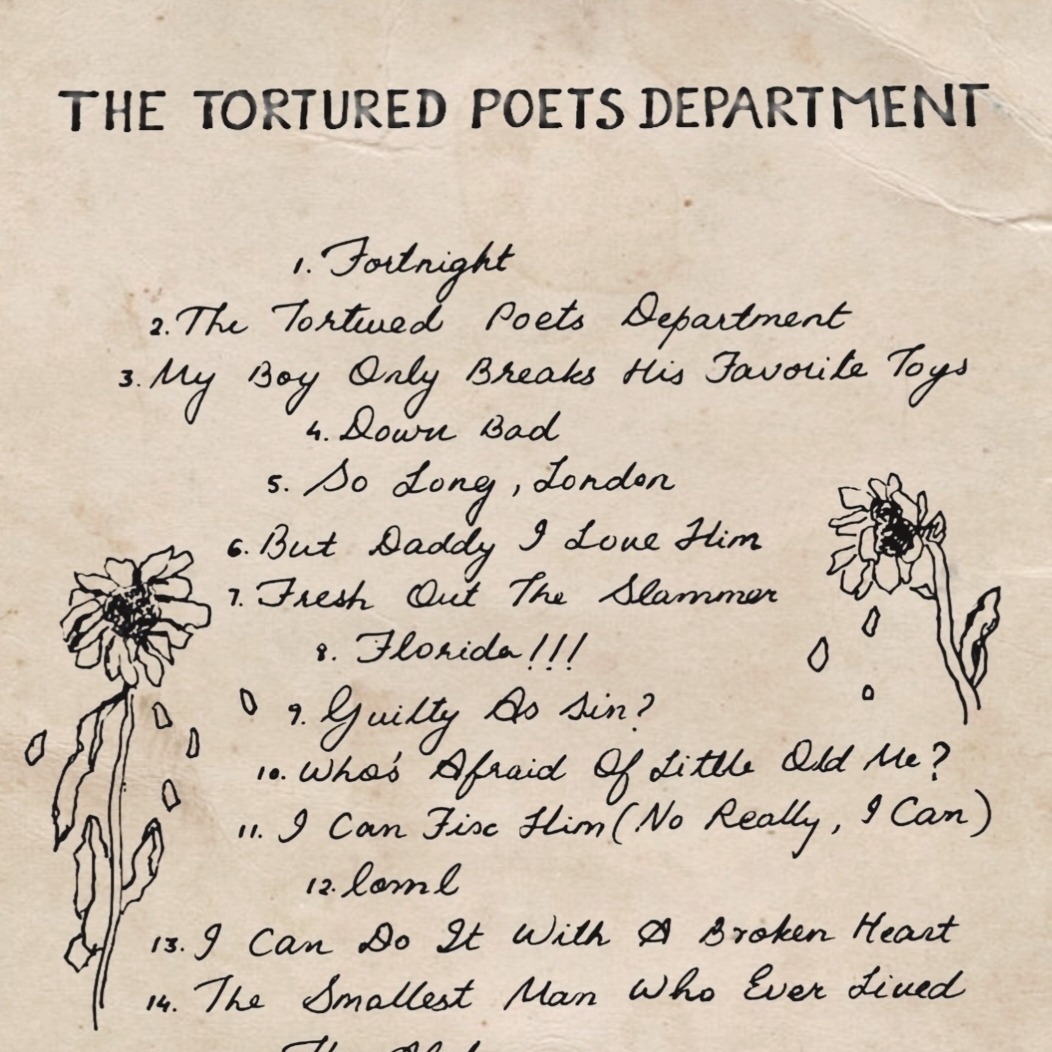 THE TORTURED POETS DEPARTMENT
1. Fortnight
2. The Tortured Poets Department
3. My Boy Only Breaks His Favorite Toys
4. Down Bad
5. So Long, London
6. But Daddy I Love Him
7. Fresh Out The Slammer
8. Florida!!!
9. Guilty As Sin?
10. Who's Afraid Of Little Old Me?
11. I Can Fix Him (No Really, I Can)
12. loml
13. I Can Do It With A Broken Heart
14. The Smallest Man Who Ever Lived